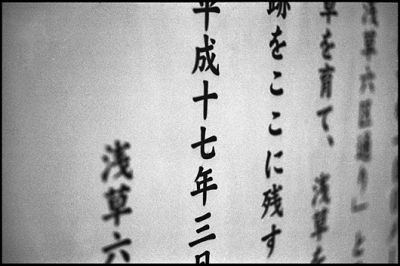 浅草六区通り」と
草を育て、浅草を
跡をここに残す
平成十七年三月
浅草六